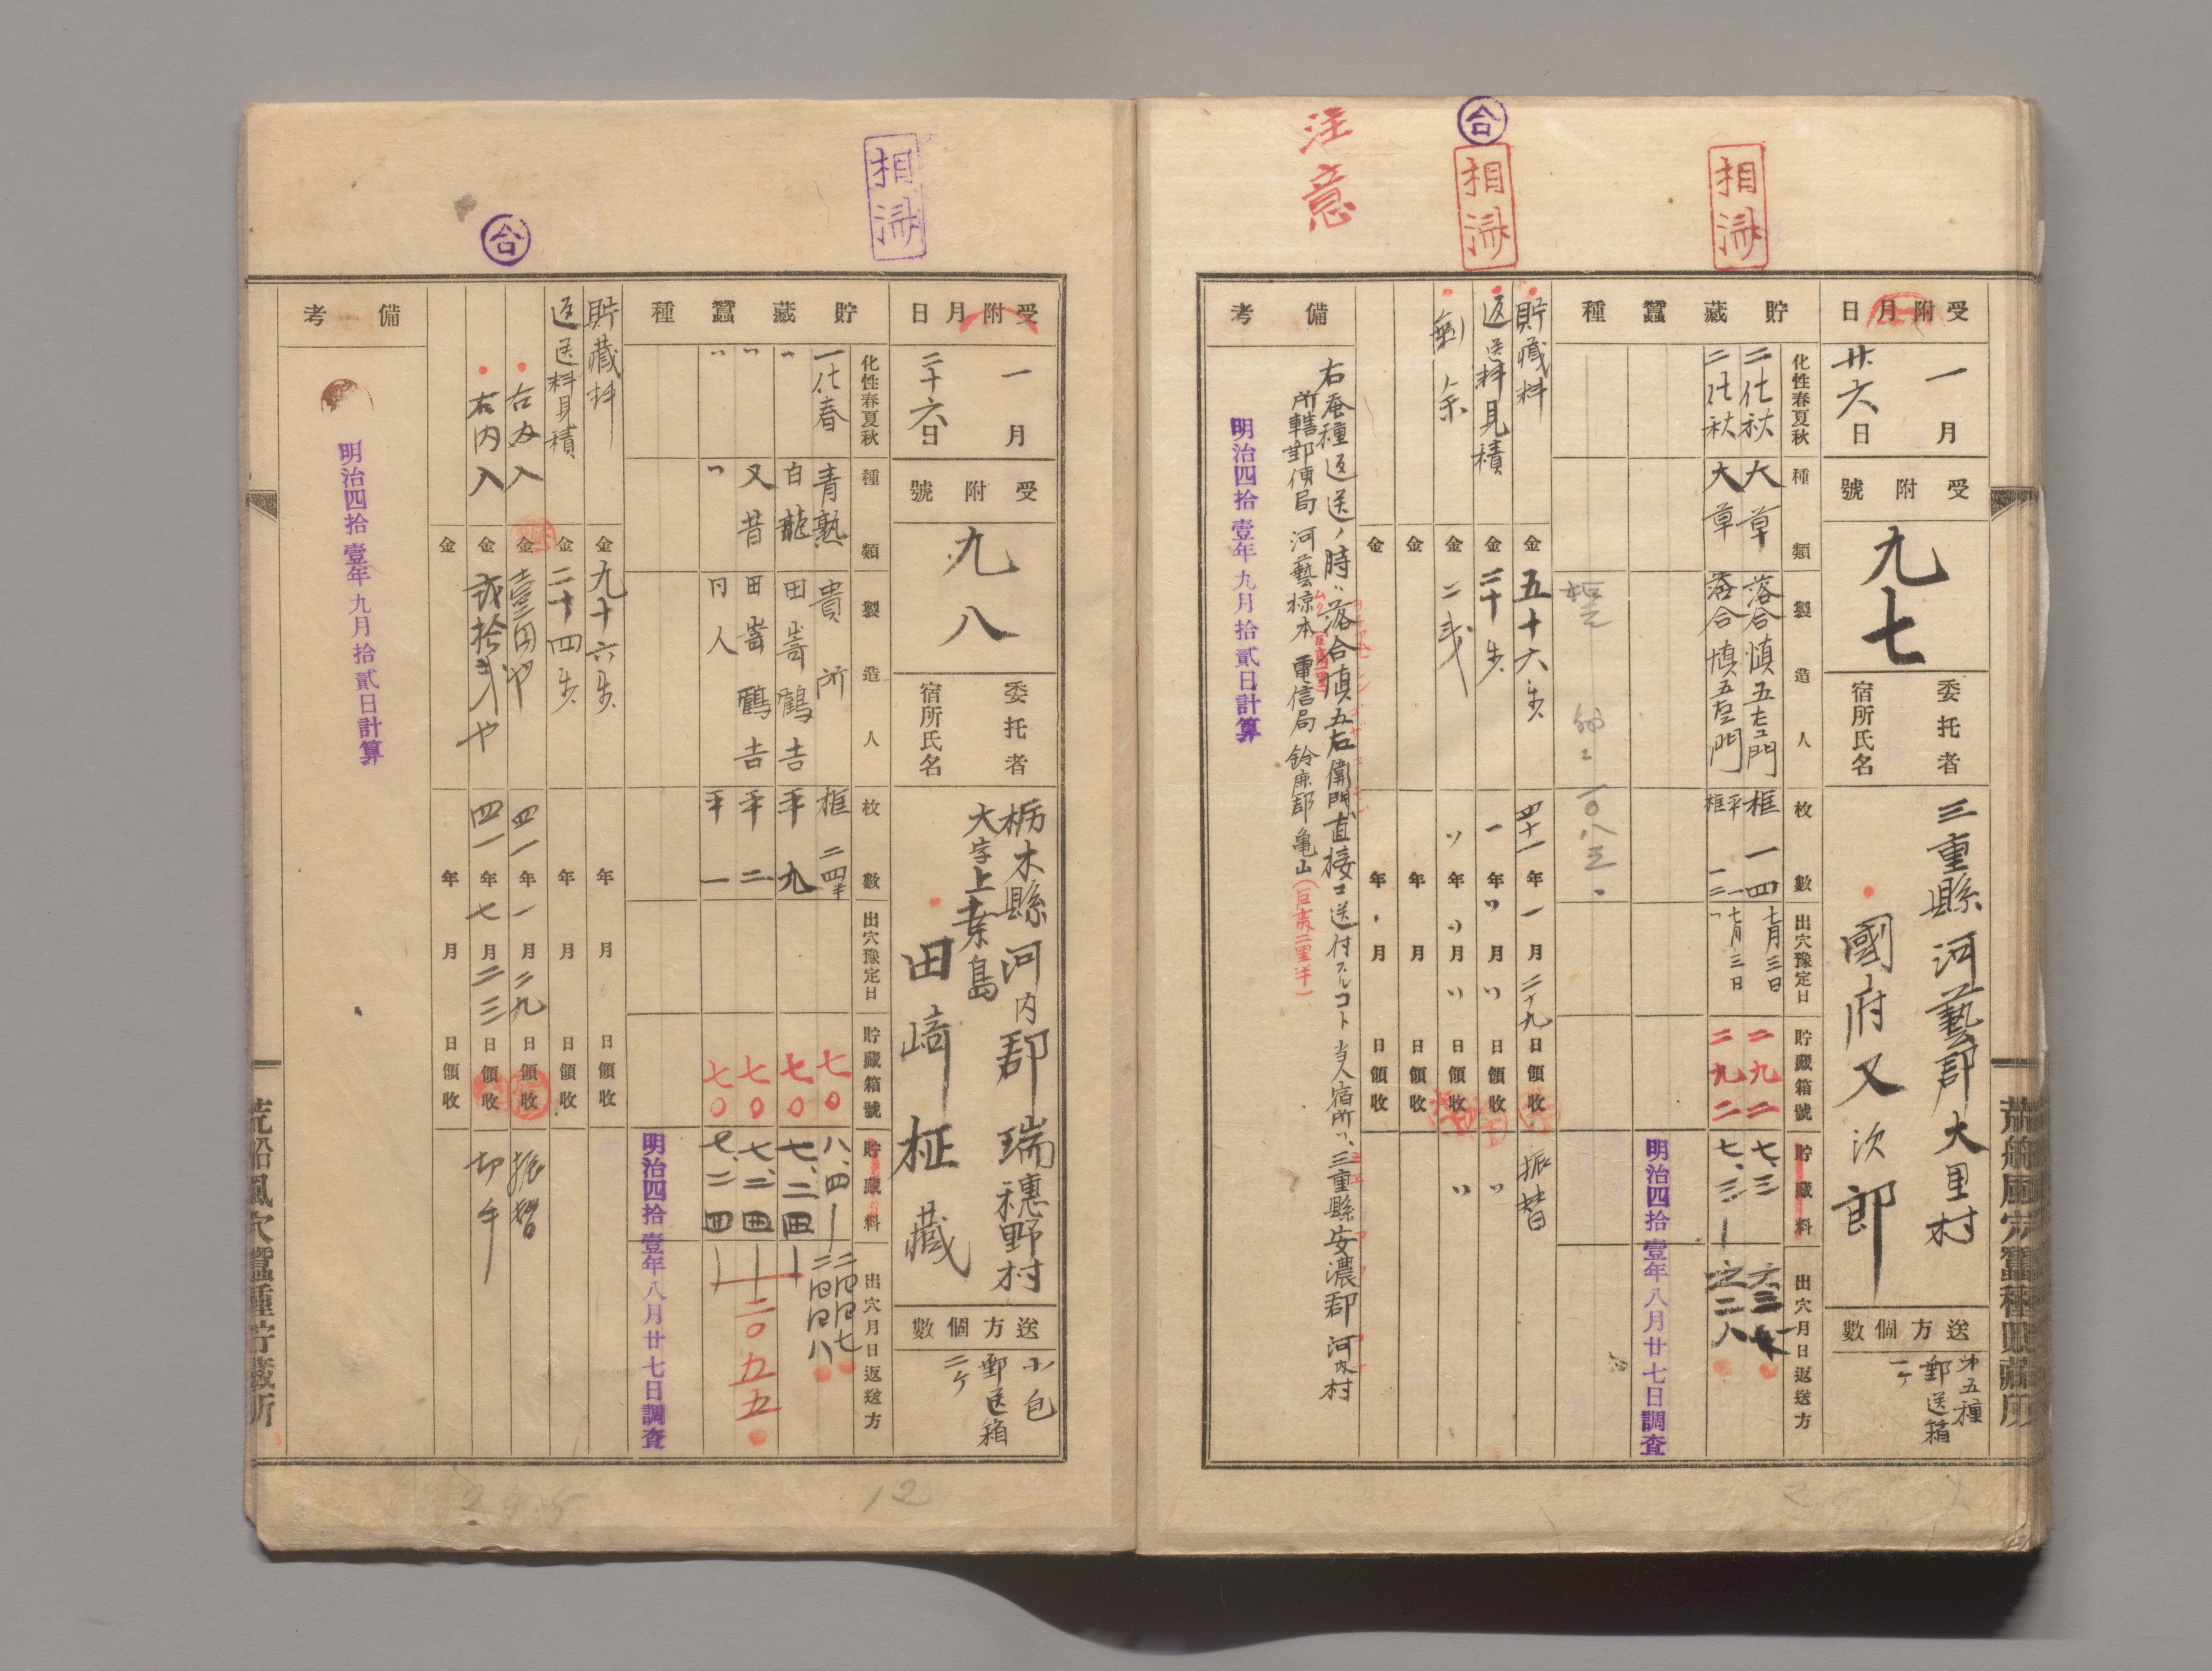 注意
合
相済
相済
受附月日
一月
廿六日
受附號
九七
委托者
宿所氏名
三重縣河藝郡大里村
國府又次郎
送方個數
第五種
郵送箱
一ケ
貯藏蠶種
化性春夏秋
種類
製造人
枚數
出穴豫定日
貯藏箱號
貯藏料
出穴月日返送方
二化秋 大草 落合慎五左エ門 框一四 七月三日 二九二 七、三
二化秋 大草 落合慎五左エ門 七月三日 二九二 七、三
明治四拾壹年八月廿七日調査
貯藏料 金五十六戋 四十一年一月二十九日領收 振替
返送料見積 金二十戋 〃年〃月〃日領收 〃
剰余 金二戋 〃年〃月〃日領收 〃
金 年 月 日領收
金 年 月 日領收
備考
右蚕種返送ノ時ハ落合慎五右衛門直接ニ送付スルコト 当人宿所ハ、三重縣安濃郡河内村
所轄郵便局 河藝椋本 電信局 鈴鹿郡亀山(巨离二里半)
明治四拾壹年九月拾貳日計算
荒船風穴蠶種貯藏所
相済
合
受附月日
一月
二十六日
受附號
九八
委托者
宿所氏名
栃木縣河内郡瑞穗野村
大字上桑島
田﨑柾藏
送方個數
小包
郵送箱
二ケ
貯藏蠶種
化性春夏秋
種類
製造人
枚數
出穴豫定日
貯藏箱號
貯藏料
出穴月日返送方
一化春 青熟 貴所 框 七〇 八、四
〃 白龍 田嵜鶴吉 平九 七〇 七、二四
〃 又昔 田嵜鶴吉 平二 七〇 七、二四
〃 〃 同人 平一 七〇 七、二四
二〇五五
明治四拾壹年八月廿七日調査
貯藏料 金九十六戋 年 月 日領收
返送料見積 金二十四戋 年 月 日領收
右内入 金壹円也 四一年一月二九日領收 振替
右内入 金貳拾戋也 四一年七月二三日領收 切手
金 年 月 日領收
備考
明治四拾壹年九月拾貳日計算
荒船風穴蠶種貯藏所
12
295